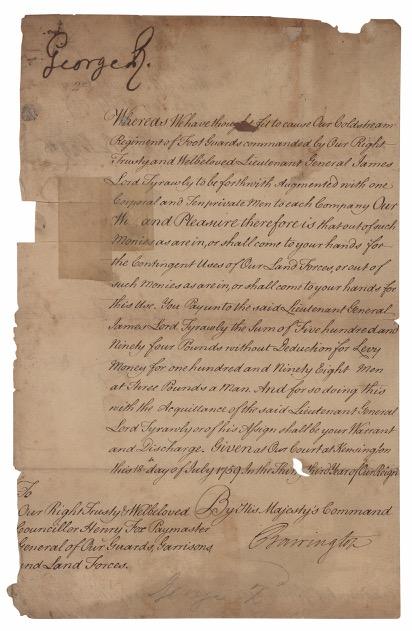 George R.
Whereas We have thought fit to cause Our Coldstream
Regiment of Foot Guards commanded by Our Right
Trusty and Welbeloved Lieutenant General James
Lord Tyrawly to be forthwith Augmented with one
Corporal and Ten private Men to each Company Our
W and Pleasure therefore is that out of such
Monies as are in, or shall come to your hands for
the Contingent Uses of Our Land Forces, or out of
such Monies as are in, or shall come to your hands for
this Use. You Pay unto the said Lieutenant General
James Lord Tyrawly the Sum of Five hundred and
Ninety four Pounds without Deduction for Levy
Money for one hundred and Ninety Eight Men
at Three Pounds a Man. And for so doing this
with the Acquittance of the said Lieutenant General
Lord Tyrawly or of his Assign shall be your Warrant
and Discharge. Given at Our Court at Kensington
this 18th day of July 1759. In the Thirty third Year of Our Reign
To
Our Right Trusty & Welbeloved
Councillor Henry Fox Paymaster
General of Our Guards, Garrisons
and Land Forces.
By His Majesty's Command
Barrington